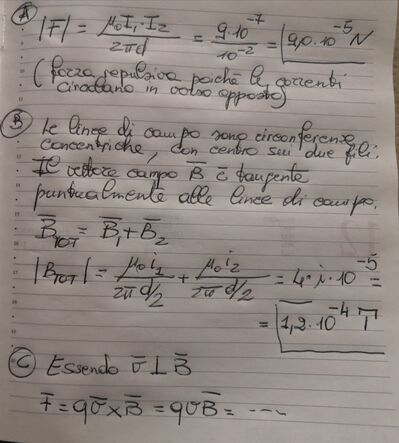 A |F̅| = μ₀I₁·I₂ / 2πd = 9·10⁻⁷ / 10⁻² = 9,0·10⁻⁵ N
(forza repulsiva poiché le correnti
circolano in verso opposto)
B Le linee di campo sono circonferenze
concentriche, con centro sui due fili.
Il vettore campo B̅ è tangente
puntualmente alle linee di campo.
B̅TOT = B̅₁ + B̅₂
|BTOT| = μ₀i₁ / 2π d/2 + μ₀i₂ / 2π d/2 = 4·i·10⁻⁵ =
= 1,2·10⁻⁴ T
C Essendo v̅ ⊥ B̅
F̅ = qv̅ × B̅ = qvB̅ = ----